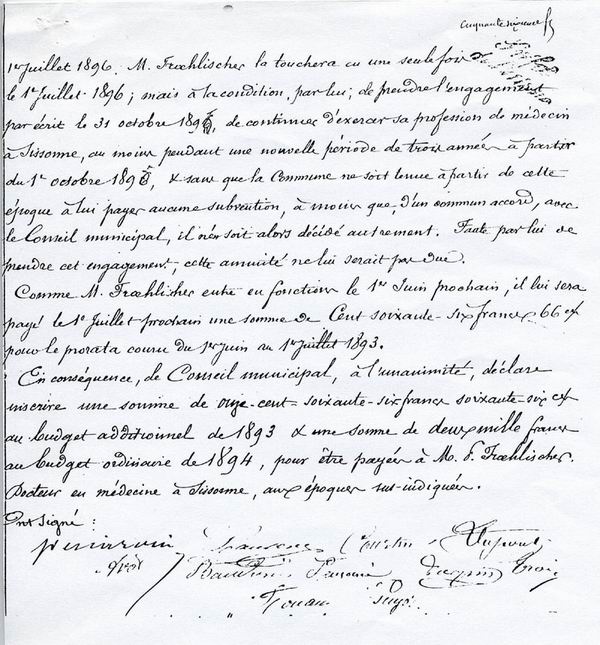 1er Juillet 1896. M. Frœhlischer la touchera en une seule fois
le 1er Juillet 1896; mais à la condition, par lui; de prendre l'engagement
par écrit le 31 octobre 1895, de continuer d'exercer sa profession de médecin
à Sissonne, au moins pendant une nouvelle période de trois années à partir
du 1er octobre 1895, & sans que la Commune ne soit tenue à partir de cette
époque à lui payer aucune subvention, à moins que, d'un commun accord, avec
le Conseil municipal, il n'en soit alors décidé autrement. Faute par lui de
prendre cet engagement, cette annuité ne lui serait pas due.
Comme M. Frœhlischer entre en fonctions le 1er Juin prochain, il lui sera
payé le 1er Juillet prochain une somme de Cent soixante-six francs 66 cs
pour le prorata couru du 1er juin au 1er juillet 1893.
En conséquence, le Conseil municipal, à l'unanimité, déclare
inscrire une somme de onze-cent-soixante-six francs soixante-six cs
au budget additionnel de 1893 & une somme de deux mille francs
au budget ordinaire de 1894, pour être payées à M. F. Frœhlischer.
Docteur en médecine à Sissonne, aux époques sus-indiquées.
Ont signé:
Dupont